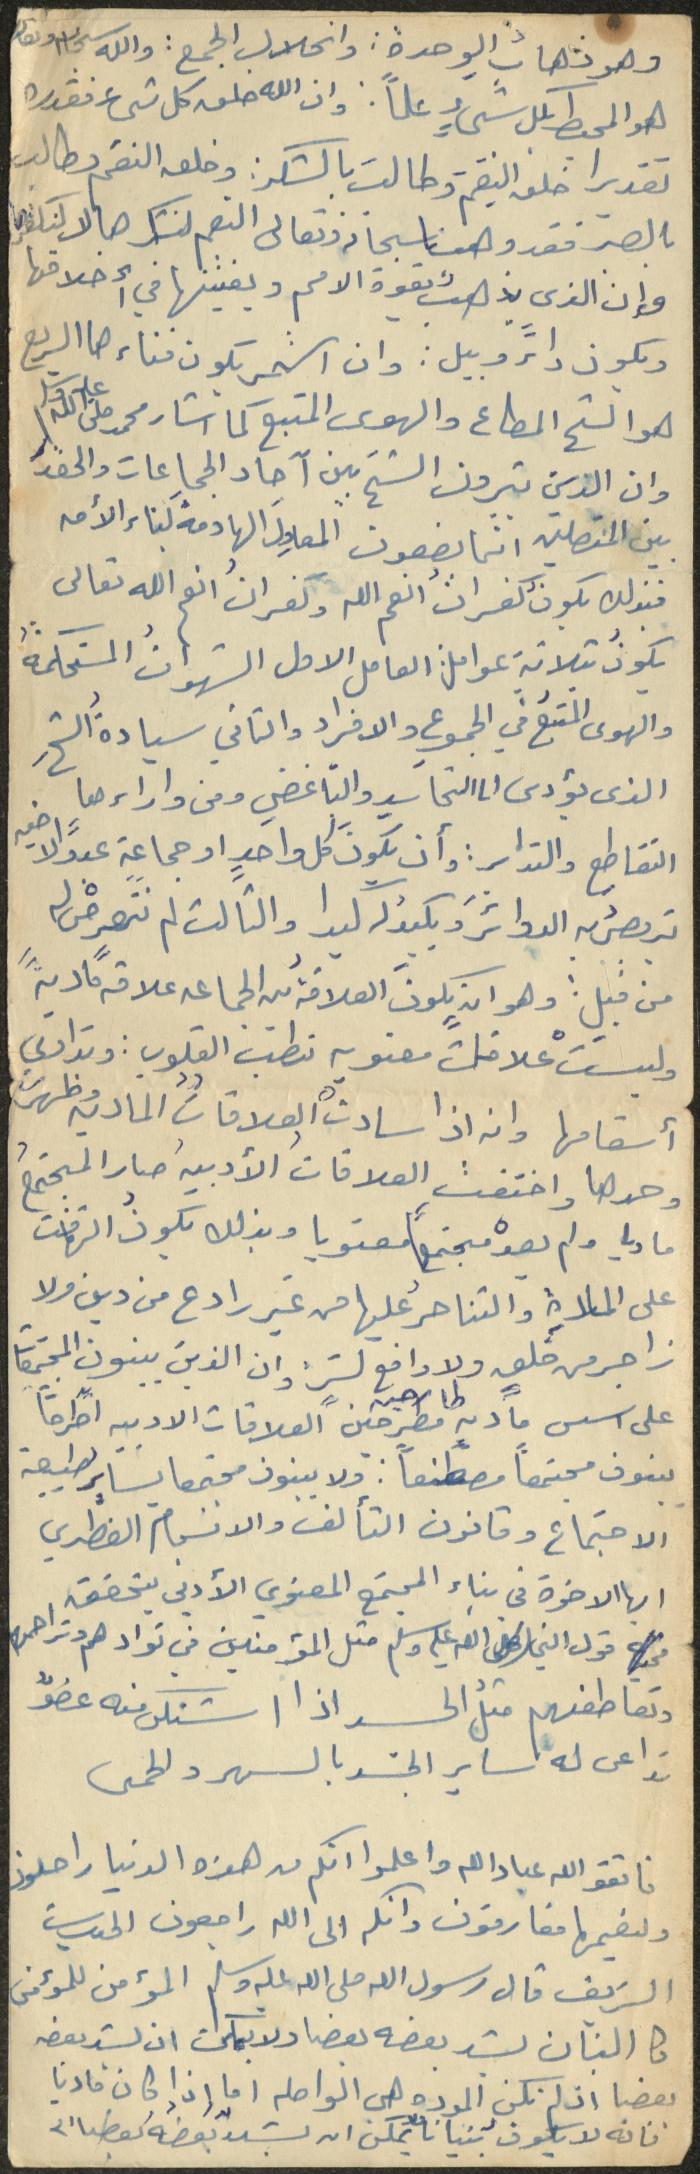 وهو ذهاب الوحدة: وانحلال الجمع: والله سبحانه وتعالى
هو المحيط بكل شيءٍ علماً: وان الله خلق كل شيء فقدره
تقديرا خلق النقمة وطالب بالشكر: وخلق النقم وطالب
بالصبر فقد وهبنا سبحانه وتعالى النعم لنشكرها لا لنكفرها
وإن الذي يذهب بقوة الامم ويفنيها في أخلاقها
ويكون داءً وبيل: وان استمر يكون فناءها السريع
هو الشح المطاع والهوى المتبع كما اشار محمد صلى الله عليه وسلم
وان الذين يثيرون الشح بين آحاد الجماعات والحقد
بين المتصلين انما يضعون المعاول الهادمة لبناء الأمه
فبذلك يكون كفران أنعم الله وكفران أنعم الله تعالى
يكون بثلاثة عوامل: العامل الاول الشهوات المستحكمة
والهوى المتبع في الجموع والافراد والثاني سيادة الشح
الذي يؤدي الى التحاسد والتباغض ومن واراءهما
التقاطع والتدابر: وأن يكون كل واحد او جماعة عدوًا لاخيه
تربص به الدوائر ويكيد له كيدا والثالث لم نتعرض له
من قبل: وهو ان يكون العلاقة بين الجماعه علاقه مادية
وليست علاقات معنويه تطب القلوب: وتداوي
أسقامها وانه اذا سادت العلاقات الماديه وظهرت
وحدها واختفت العلاقات الأدبيه صار المجتمع
ماديا ولم يعد مجتمعاً معنويا وبذلك يكون التهافت
على الماده والتناحر عليها من غير رادع من دين ولا
زاجر من خلق ولا دافع لشر: وان الذين يبنون المجتمعات
على اسس ماديه مطرحين العلاقات الادبيه اطراحاً
يبنون مجتمعاً مصطنعاً: ولا يبنون مجتمعا يساير طبيعة
الاجتماع وقانون التألف والانسجام الفطري
ايها الاخوة في بناء المجتمع المعنوي الأدبي يتحقق
فيه قول النبي صلى الله عليه وسلم مثل المؤمنين في توادهم وتراحمهم
وتعاطفهم مثل الجسد اذا اشتكى منه عضو
تداعى له ساير الجسد بالسهر والحمى
فاتقو الله عباد الله واعلموا انكم من هذه الدنيا راحلون
ولنعيمها مفارقون وانكم الى الله راجعون الحديث
الشريف قال رسول الله صلى الله عليه وسلم المؤمن للمؤمن
كالبنيان يشد بعضه بعضا ولا يمكن ان يشد بعضه
بعضا اذ لم تكن الموده هي الواصله اما اذا كان ماديا
فانه لا يكون بنيانا لا يمكن ان يشد بعضه بعضا